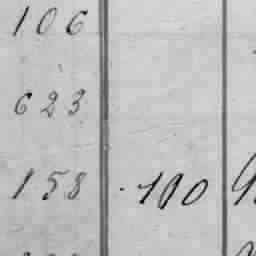 106
623
158 110